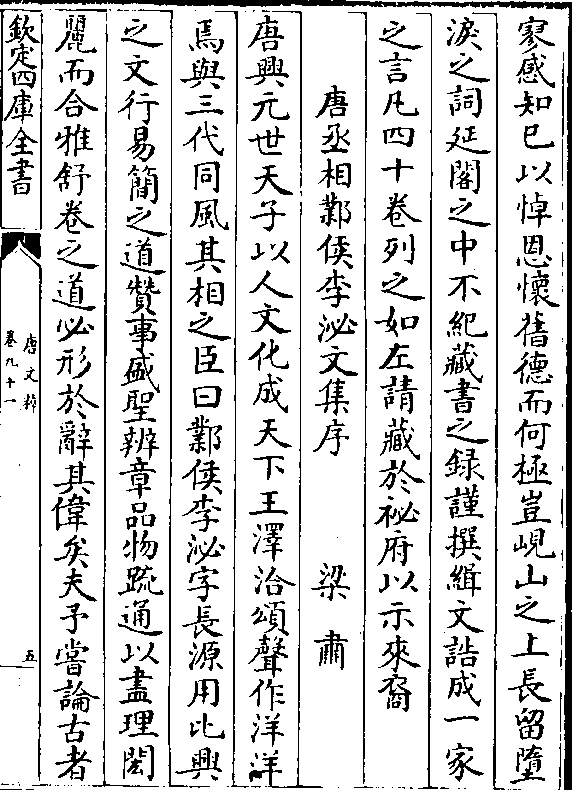 寥感知已以悼恩懷舊德而何極豈峴山之上長留墮
淚之詞延閣之中不紀藏書之録謹撰緝文誥成一家
之言凡四十卷列之如左請藏於祕府以示來裔
唐丞相鄴侯李泌文集序　梁肅
唐興元世天子以人文化成天下王澤洽頌聲作洋洋
焉與三代同風其相之臣曰鄴侯李泌字長源用比興
之文行易簡之道贊事盛聖辨章品物疏通以盡理閎
麗而合雅舒卷之道必形於辭其偉矣夫予嘗論古者
欽定四庫全書
唐文粹
卷九十一
五